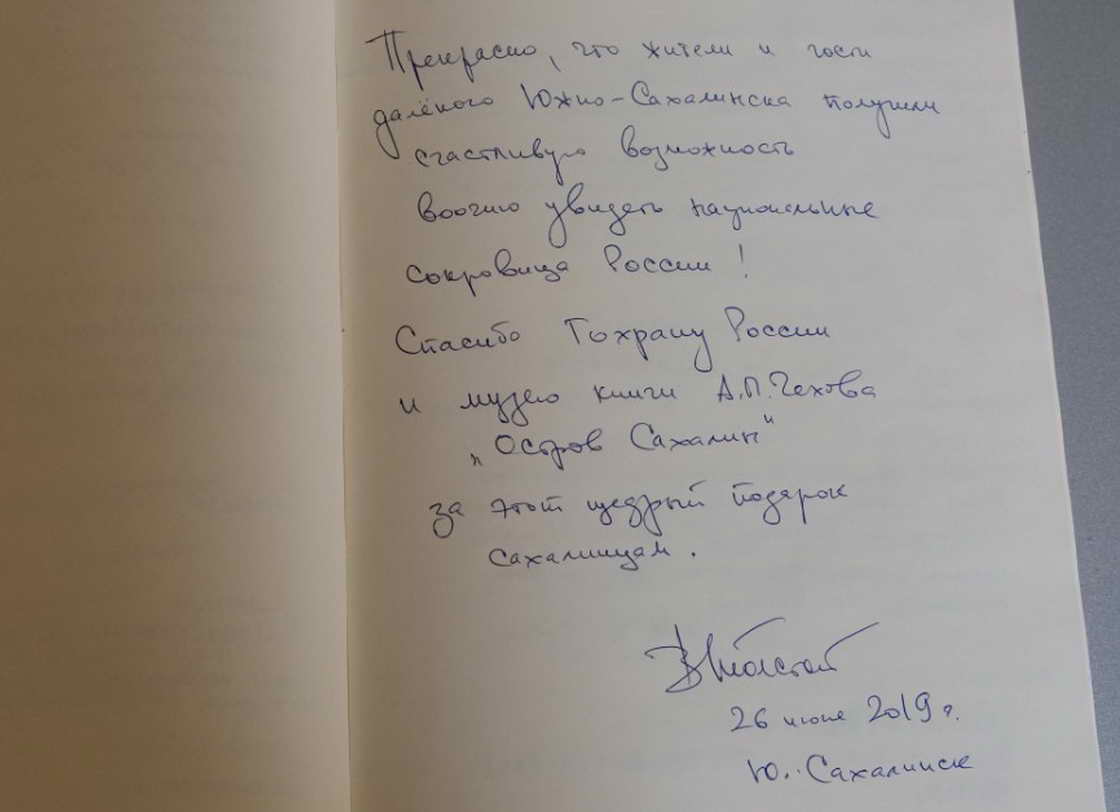 Прекрасно, что жители и гости
далёкого Южно-Сахалинска получили
счастливую возможность
воочию увидеть национальные
сокровища России!
Спасибо Гохрану России
и музею книги А.П.Чехова
„Остров Сахалин"
за этот щедрый подарок
сахалинцам.
ВТолстой
26 июня 2019 г.
Ю. Сахалинск